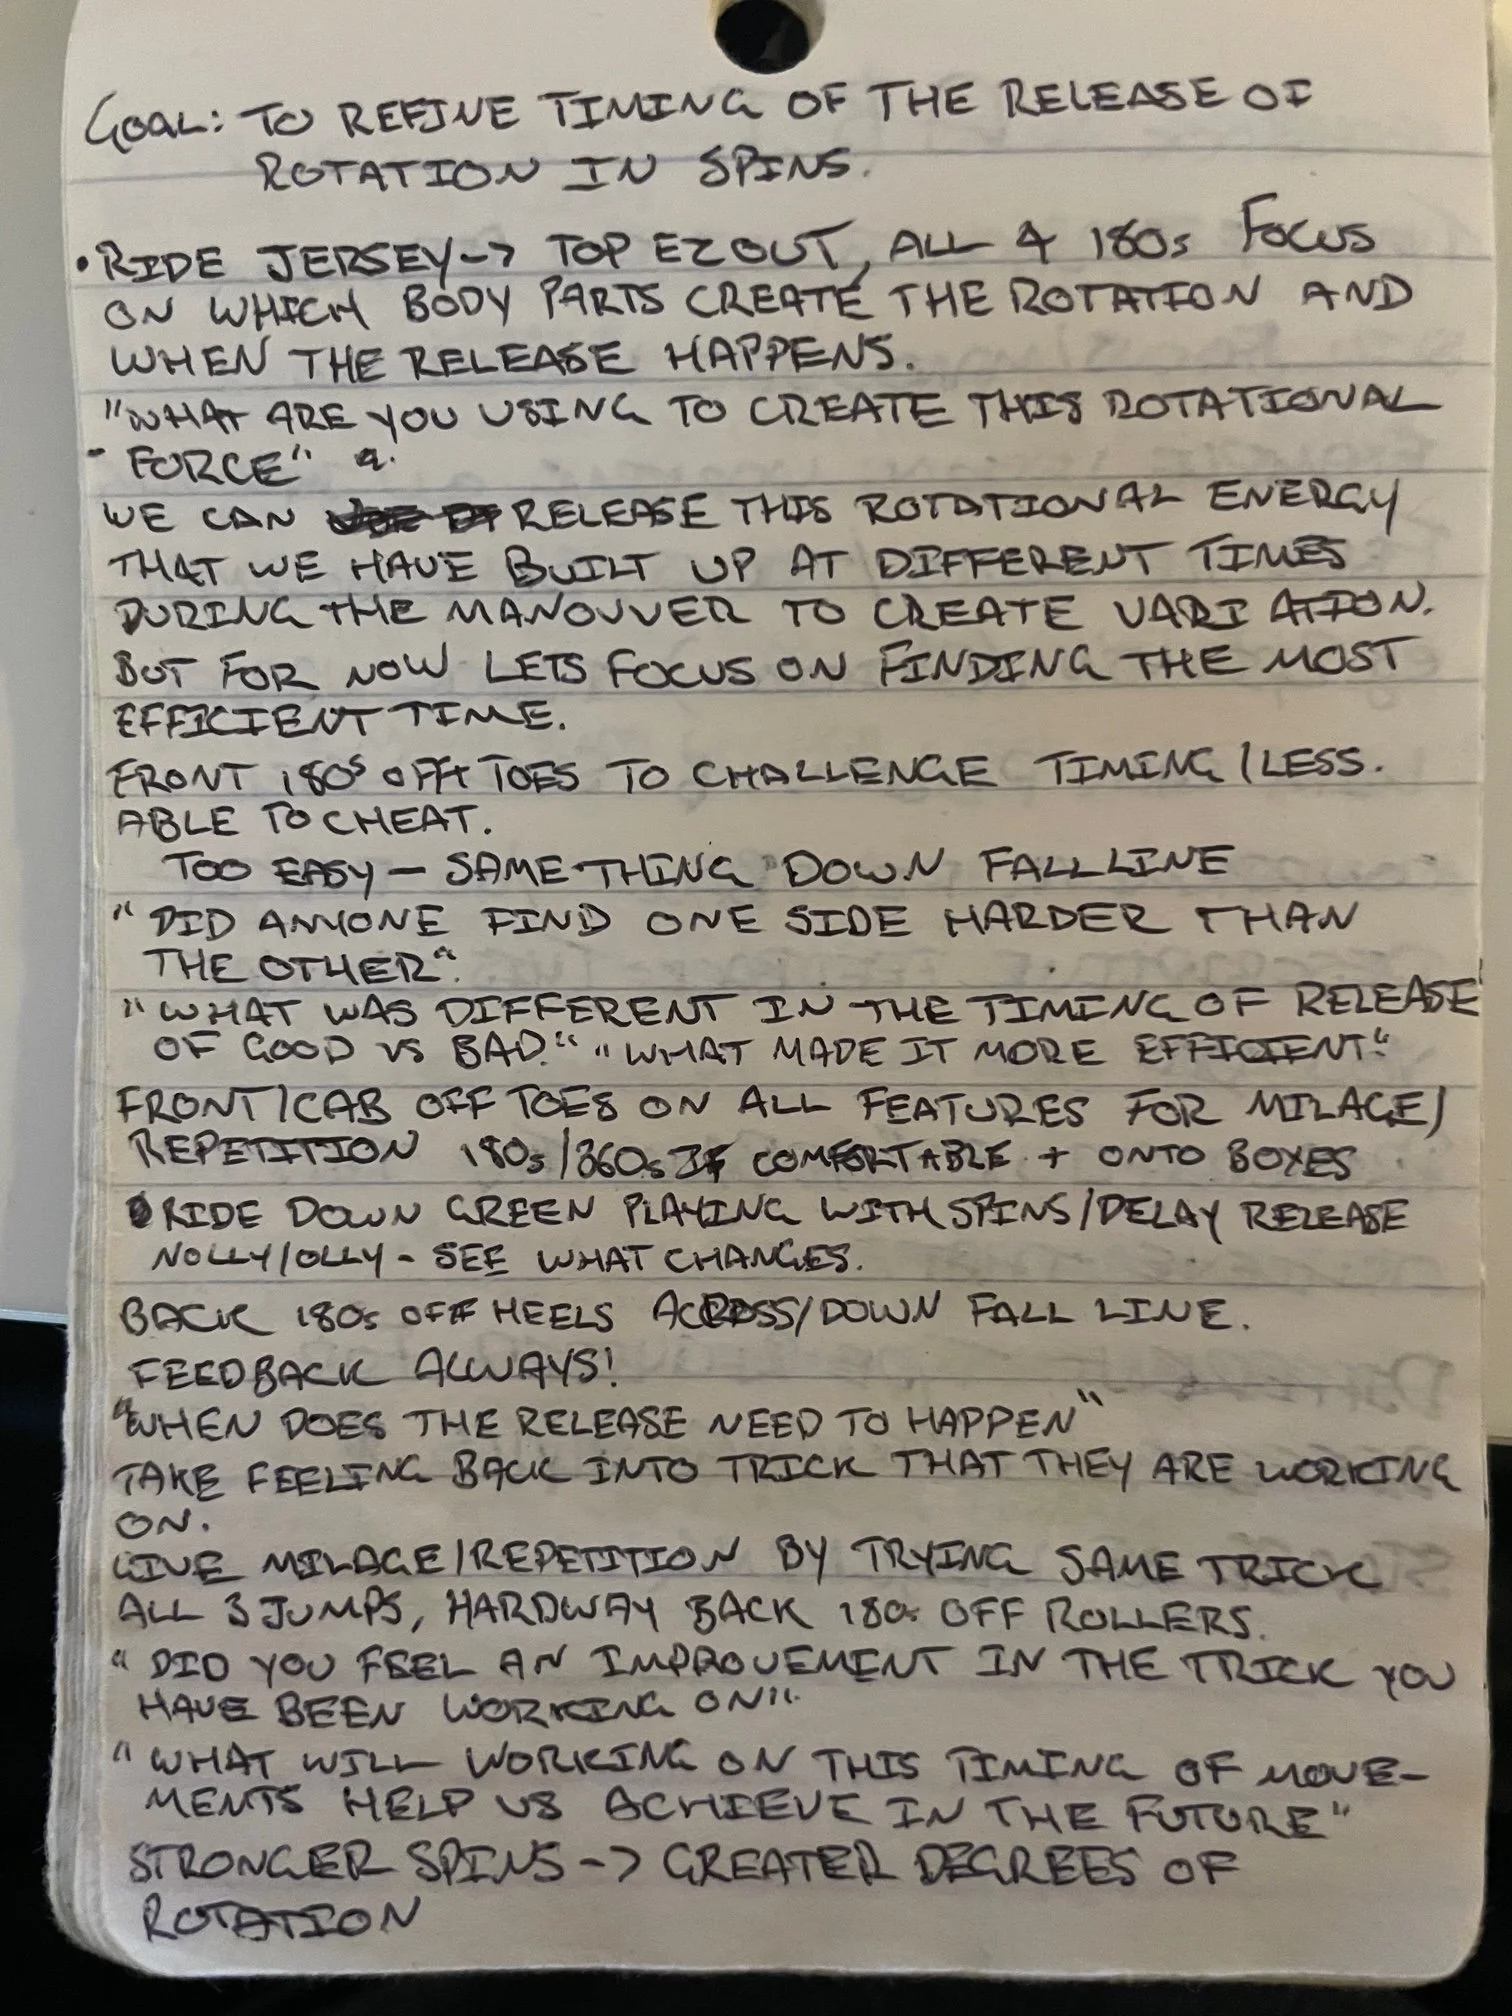 GOAL: TO REFINE TIMING OF THE RELEASE OF
ROTATION IN SPINS.
• RIDE JERSEY -> TOP EZ OUT, ALL 4 180s FOCUS
ON WHICH BODY PARTS CREATE THE ROTATION AND
WHEN THE RELEASE HAPPENS.
"WHAT ARE YOU USING TO CREATE THIS ROTATIONAL
- FORCE"
WE CAN RELEASE THIS ROTATIONAL ENERGY
THAT WE HAVE BUILT UP AT DIFFERENT TIMES
DURING THE MANOUVER TO CREATE VARIATION.
BUT FOR NOW LETS FOCUS ON FINDING THE MOST
EFFICIENT TIME.
FRONT 180s OFF TOES TO CHALLENGE TIMING / LESS.
ABLE TO CHEAT.
TOO EASY - SAME THING DOWN FALL LINE
"DID ANYONE FIND ONE SIDE HARDER THAN
THE OTHER".
"WHAT WAS DIFFERENT IN THE TIMING OF RELEASE
OF GOOD VS BAD." "WHAT MADE IT MORE EFFICIENT."
FRONT/CAB OFF TOES ON ALL FEATURES FOR MILAGE/
REPETITION 180s/360s IF COMFORTABLE + ONTO BOXES
• RIDE DOWN GREEN PLAYING WITH SPINS/DELAY RELEASE
NOLLY/OLLY - SEE WHAT CHANGES.
BACK 180s OFF HEELS ACROSS/DOWN FALL LINE.
FEEDBACK ALWAYS!
"WHEN DOES THE RELEASE NEED TO HAPPEN"
TAKE FEELING BACK INTO TRICK THAT THEY ARE WORKING
ON.
GIVE MILAGE/REPETITION BY TRYING SAME TRICK
ALL 3 JUMPS, HARDWAY BACK 180s OFF ROLLERS.
"DID YOU FEEL AN IMPROVEMENT IN THE TRICK YOU
HAVE BEEN WORKING ON".
"WHAT WILL WORKING ON THIS TIMING OF MOVE-
MENTS HELP US ACHIEVE IN THE FUTURE"
STRONGER SPINS -> GREATER DEGREES OF
ROTATION